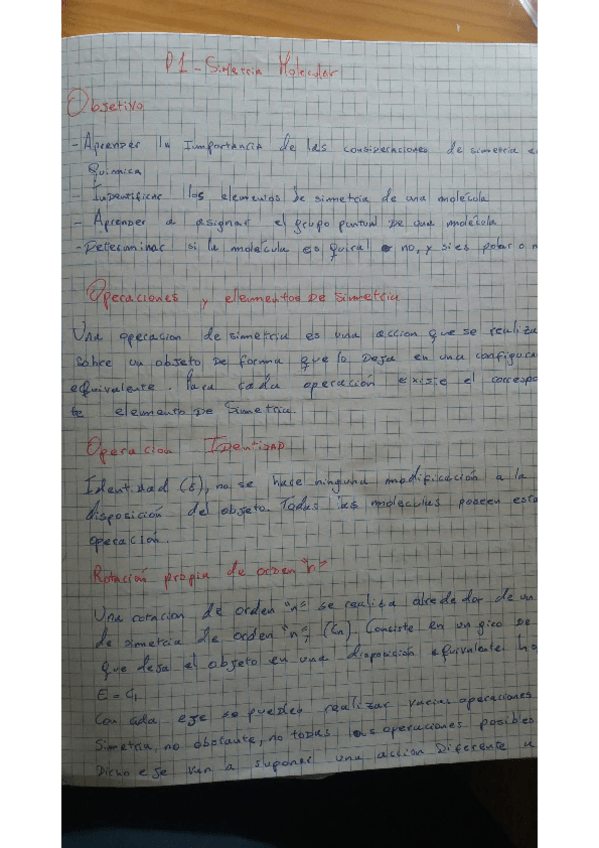 P1 - Simetria Molecular
Objetivo
- Aprender la Importancia de las consideraciones de simetria e
Quimica
- Indentificar los elementos de simmetria de una molécula
- Aprender a asignar el grupo puntual De una molécula
- Determinar si la molécula es quiral o no, y si es polar o n
Operaciones y elementos De Simetria
Una operacion de simetria es una accion que se realiza
sobre un objeto De forma que lo Deja en una configura
equivalente. Para cada operación existe el correspo
te elemento De Simetria.
Operacion Identidad
Identidad (E), no se hace ninguna modificación a la
disposición del objeto. Todas las moléculas poseen esta
operación.
Rotación propia de orden "n"
Una rotacion de orden "n" se realiza alrededor de un
de simetria de orden "n", (Cn). Consiste en un giro De
que deja el objeto en una disposición equivalente
E = C1
Con cada eje se pueden realizar varias operaciones
Simetria, no obstante, no todas las operaciones posibles
Dicho eje van a suponer una accion Diferente a